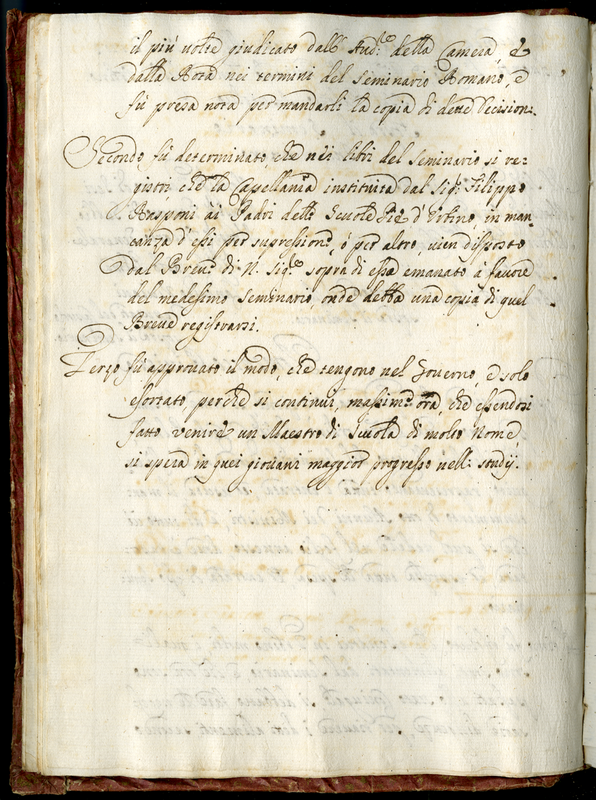 il più volte giudicato dall' Aud.re della Camera, e
dalla Rota nei termini del Seminario Romano, e
fù presa nota per mandarli la copia di dette Decisioni.
Secondo, fù determinato, che nei libri del Seminario si re=
gistri, che la Capellania instituita dal Sig.r Filippo
Rasponi ai Padri delle Scuole Pie d'Urbino, in man=
canza d'essi per supressione, ò per altro, vien disposto
dal Breve di N. Sig.re sopra di essa emanato à favore
del medesimo Seminario, onde debba una copia di quel
Breve registrarsi.
Terzo fù approvato il modo, che tengono nel Governo, e solo
esortato, perche si continui, massime ora, che essendosi
fatto venire un Maestro di Scuola di molto Nome,
si spera in quei giovani maggior progresso nelli studij.